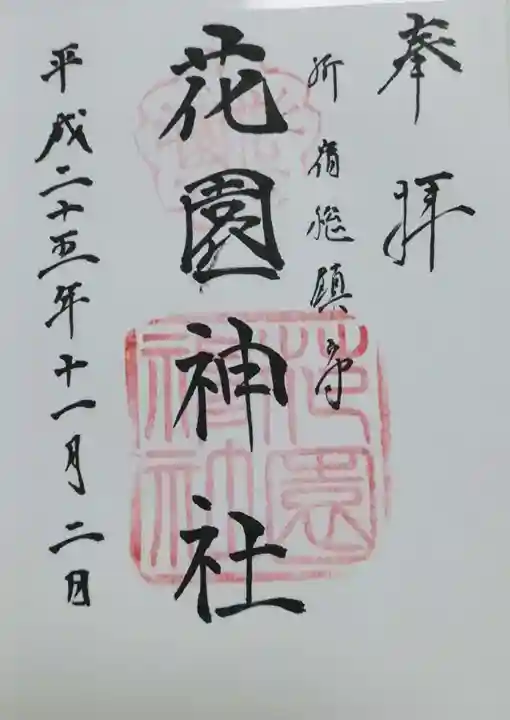 奉拝
新宿総鎮守
花園神社
花園
神社
平成二十五年十一月二日